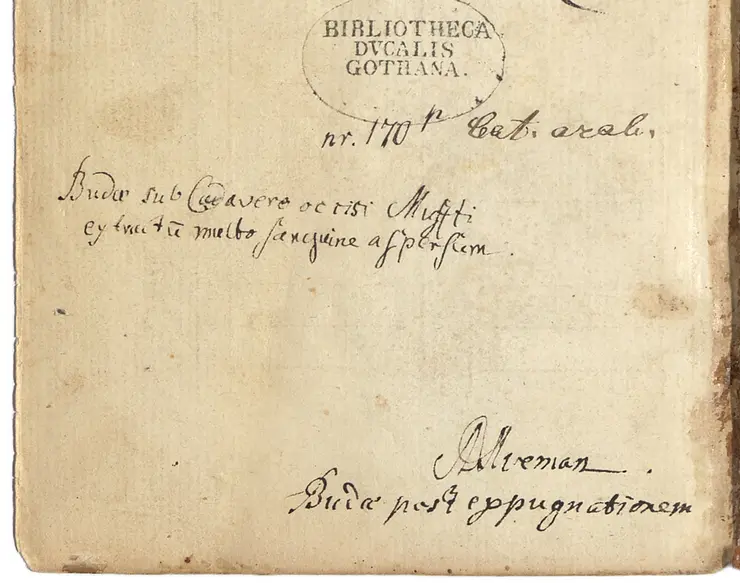 BIBLIOTHECA
DVCALIS
GOTHANA.
nr. 170 Cat. arab.
Budæ sub Cadavere occisi Muffti
extractū multo sanguine aspersum.
Budæ post expugnationem